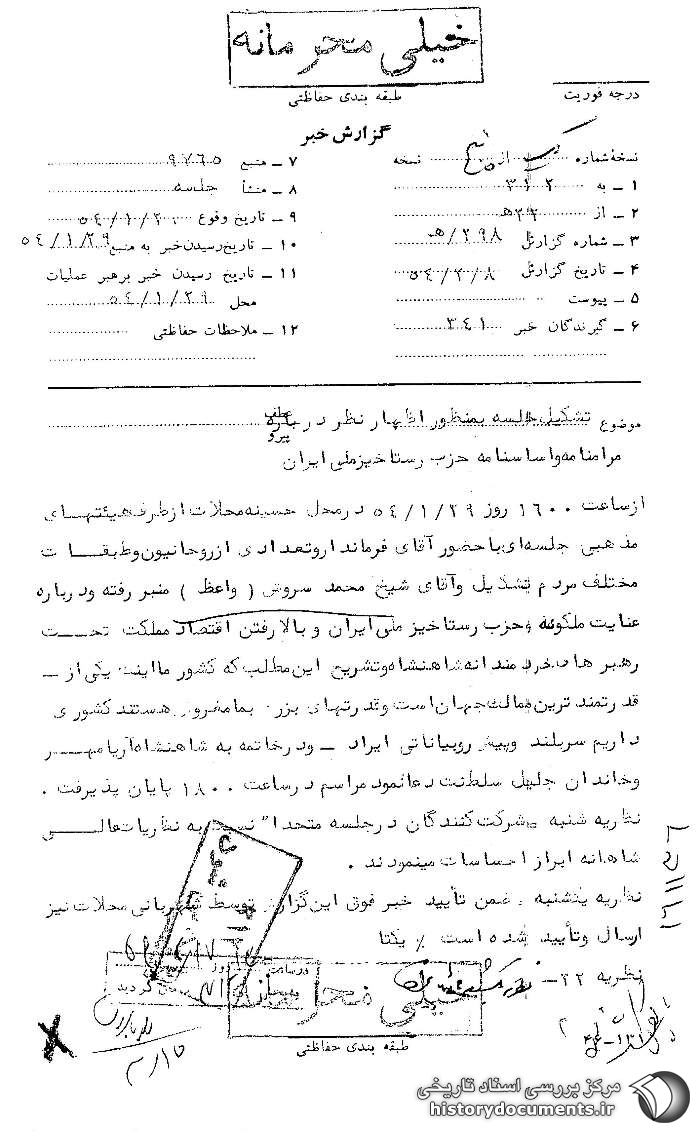 خیلی محرمانه
طبقه بندی حفاظتی
درجه فوریت
گزارش خبر
نسخهٔ شماره یک از پنج نسخه
۱ ـ به ۳۱۲
۲ ـ از ۲۲ه‍
۳ ـ شماره گزارش ۲۹۸/ه‍
۴ ـ تاریخ گزارش ۵۴/۲/۸
۵ ـ پیوست
۶ ـ گیرندگان خبر ۳۴۱
۷ ـ منبع ۹۷۶۵
۸ ـ منشأ جلسه
۹ ـ تاریخ وقوع ۵۴/۱/۲۰
۱۰ ـ تاریخ رسیدن خبر به منبع ۵۴/۱/۲۹
۱۱ ـ تاریخ رسیدن خبر برهبر عملیات
محل ۵۴/۱/۲۹
۱۲ ـ ملاحظات حفاظتی
موضوع تشکیل جلسه بمنظور اظهار نظر درباره
عطف
پیرو
مرامنامه واساسنامه حزب رستاخیز ملی ایران
ازساعت ۱۶۰۰ روز ۵۴/۱/۲۹ درمحل حسینه محلات ازطرف هیئتهای
مذهبی جلسه‌ای با حضور آقای فرماندار وتعدادی ازروحانیون وطبقات
مختلف مردم تشکیل وآقای شیخ محمد سروش ( واعظ ) منبر رفته ودرباره
عنایت ملکونه وحزب رستاخیز ملی ایران و بالا رفتن اقتصاد مملکت تحت
رهبر هاخرد مندانه شاهنشاه وتشریح این مطلب که کشور ما اینت یکی از ـ
قدرتمند ترین ممالک جهان است وقدرتهای بزر بمامغرو هستند کشوری
داریم سربلند وپیش رو بیاناتی ایراد ـ ودرخاتمه به شاهنشاه آریامهر
وخاندان جلیل سلطنت دعانمود مراسم درساعت ۱۸۰۰ پایان پذیرفت .
نظریه شنبه ـ شرکت کنندگان درجلسه متحدا" نسبت به نظریات عالی
شاهانه ابراز احساسات مینمودند .
نظریه یکشنبه . ضمن تأیید خبر فوق این گزارش توسط شهربانی محلات نیز
ارسال وتأیید شده است ٪ یکتا
نظریه ۲۲ـ
خیلی محرمانه
طبقه بندی حفاظتی
مرکز بررسی اسناد تاریخی
historydocuments.ir